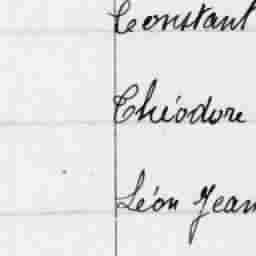 Constant
Théodore
Léon Jean